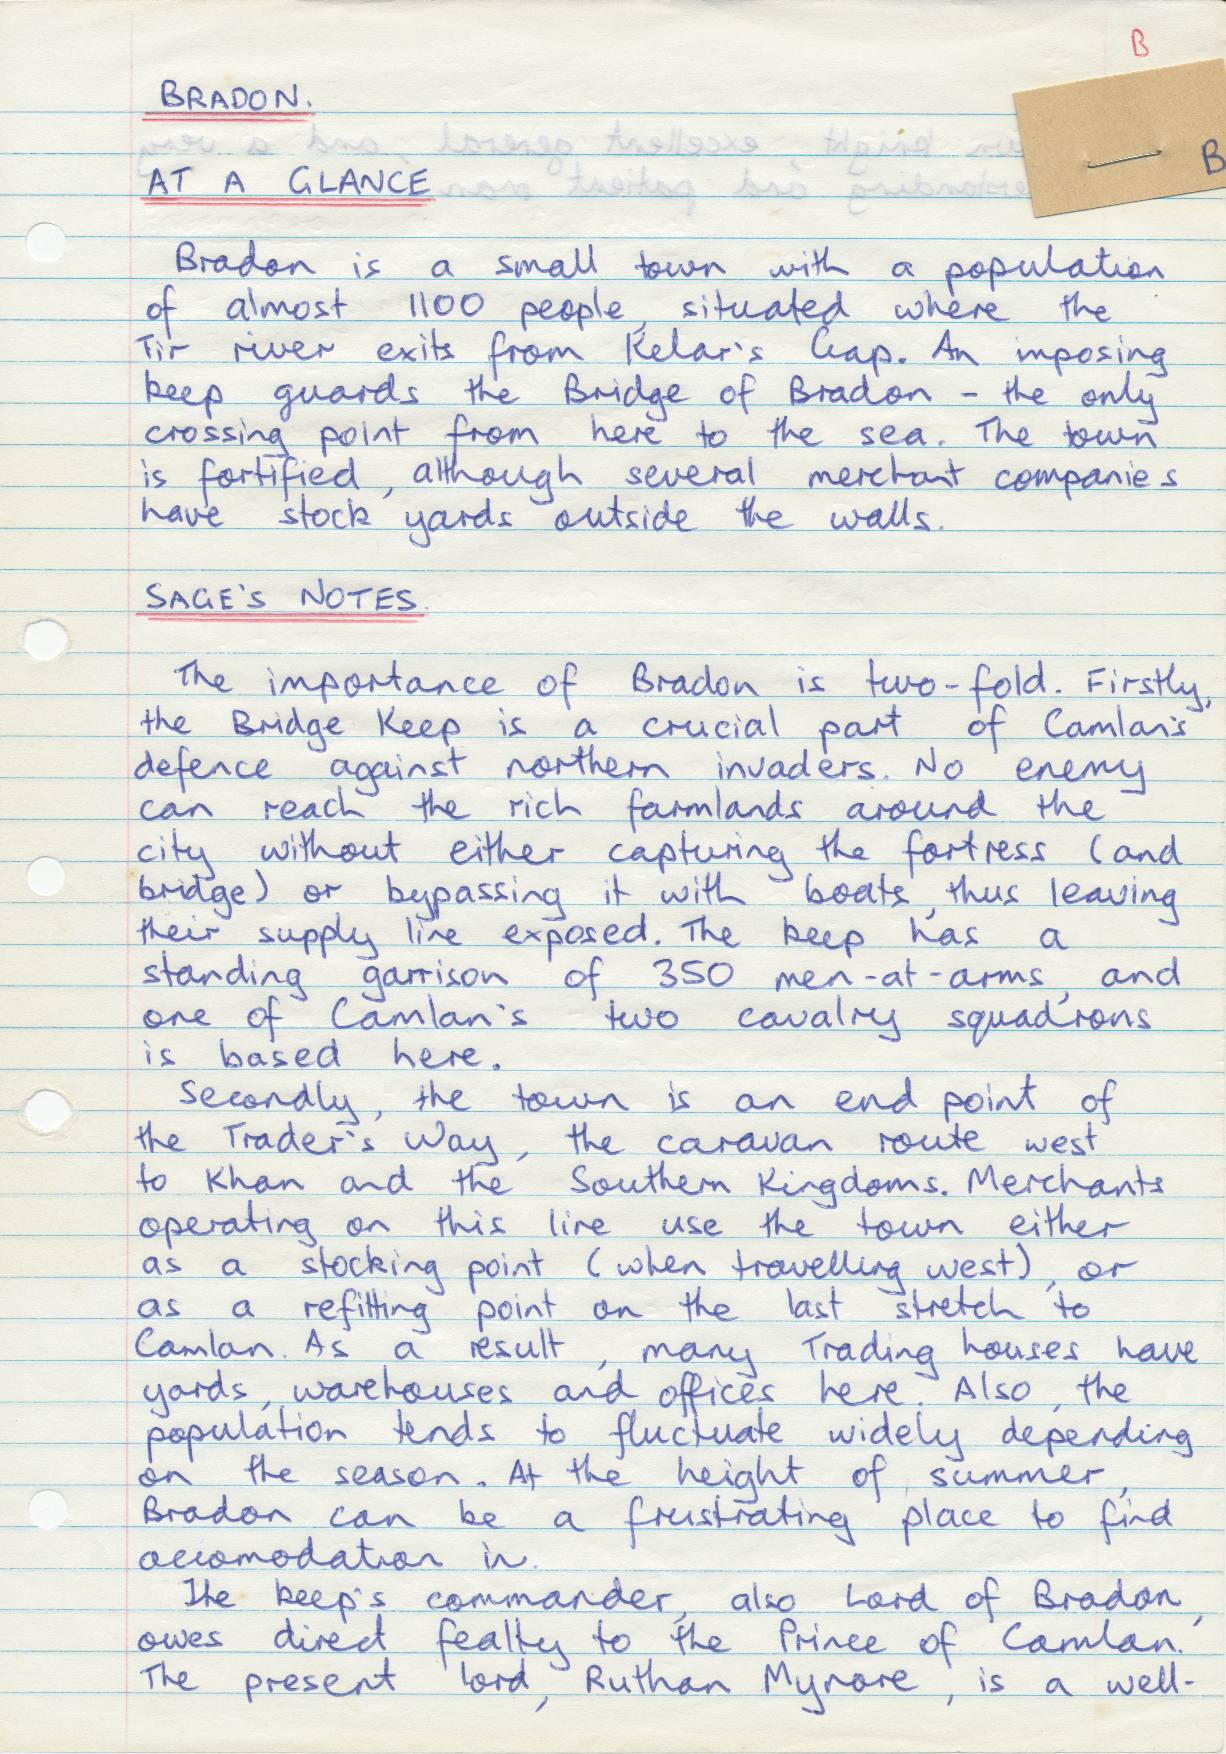 B
BRADON.
B
AT A GLANCE
Bradon is a small town with a population
of almost 1100 people, situated where the
Tir river exits from Kelar's Gap. An imposing
keep guards the Bridge of Bradon - the only
crossing point from here to the sea. The town
is fortified, although several merchant companies
have stock yards outside the walls.
SAGE'S NOTES.
The importance of Bradon is two-fold. Firstly,
the Bridge Keep is a crucial part of Camlan's
defence against northern invaders. No enemy
can reach the rich farmlands around the
city without either capturing the fortress (and
bridge) or bypassing it with boats, thus leaving
their supply line exposed. The keep has a
standing garrison of 350 men-at-arms, and
one of Camlan's two cavalry squadrons
is based here.
Secondly, the town is an end point of
the Trader's Way, the caravan route west
to Khan and the Southern Kingdoms. Merchants
operating on this line use the town either
as a stocking point (when travelling west), or
as a refitting point on the last stretch to
Camlan. As a result, many Trading houses have
yards, warehouses and offices here. Also, the
population tends to fluctuate widely depending
on the season. At the height of summer,
Bradon can be a frustrating place to find
accomodation in.
The keep's commander, also Lord of Bradon,
owes direct fealty to the Prince of Camlan.
The present lord, Ruthan Mynore, is a well-